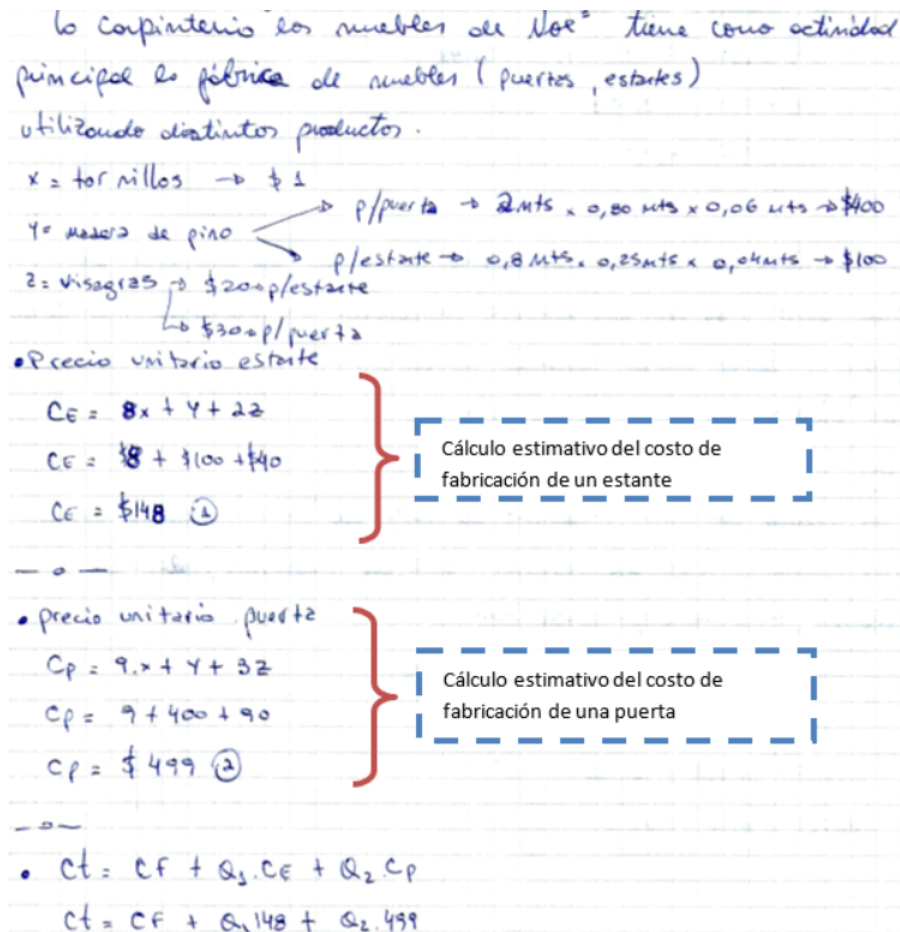 la carpinteria los muebles de Noe" tiene como actividad
principal la fábrica de muebles (puertas, estantes)
utilizando distintos productos.
x = tornillos → $1
Y = madera de pino
p/puerta → 2mts x 0,80 mts x 0,06 mts → $400
p/estante → 0,8 mts x 0,25mts x 0,04mts → $100
z = visagras → $20 p/estante
↳ $30 p/puerta
• Precio unitario estante
CE = 8x + Y + 2z
CE = $8 + $100 + $40
CE = $148 ①
Cálculo estimativo del costo de
fabricación de un estante
— o —
• precio unitario puerta
Cp = 9.x + Y + 3z
Cp = 9 + 400 + 90
Cp = $499 ②
Cálculo estimativo del costo de
fabricación de una puerta
— o —
• Ct = CF + Q1.CE + Q2.Cp
Ct = CF + Q1.148 + Q2.499